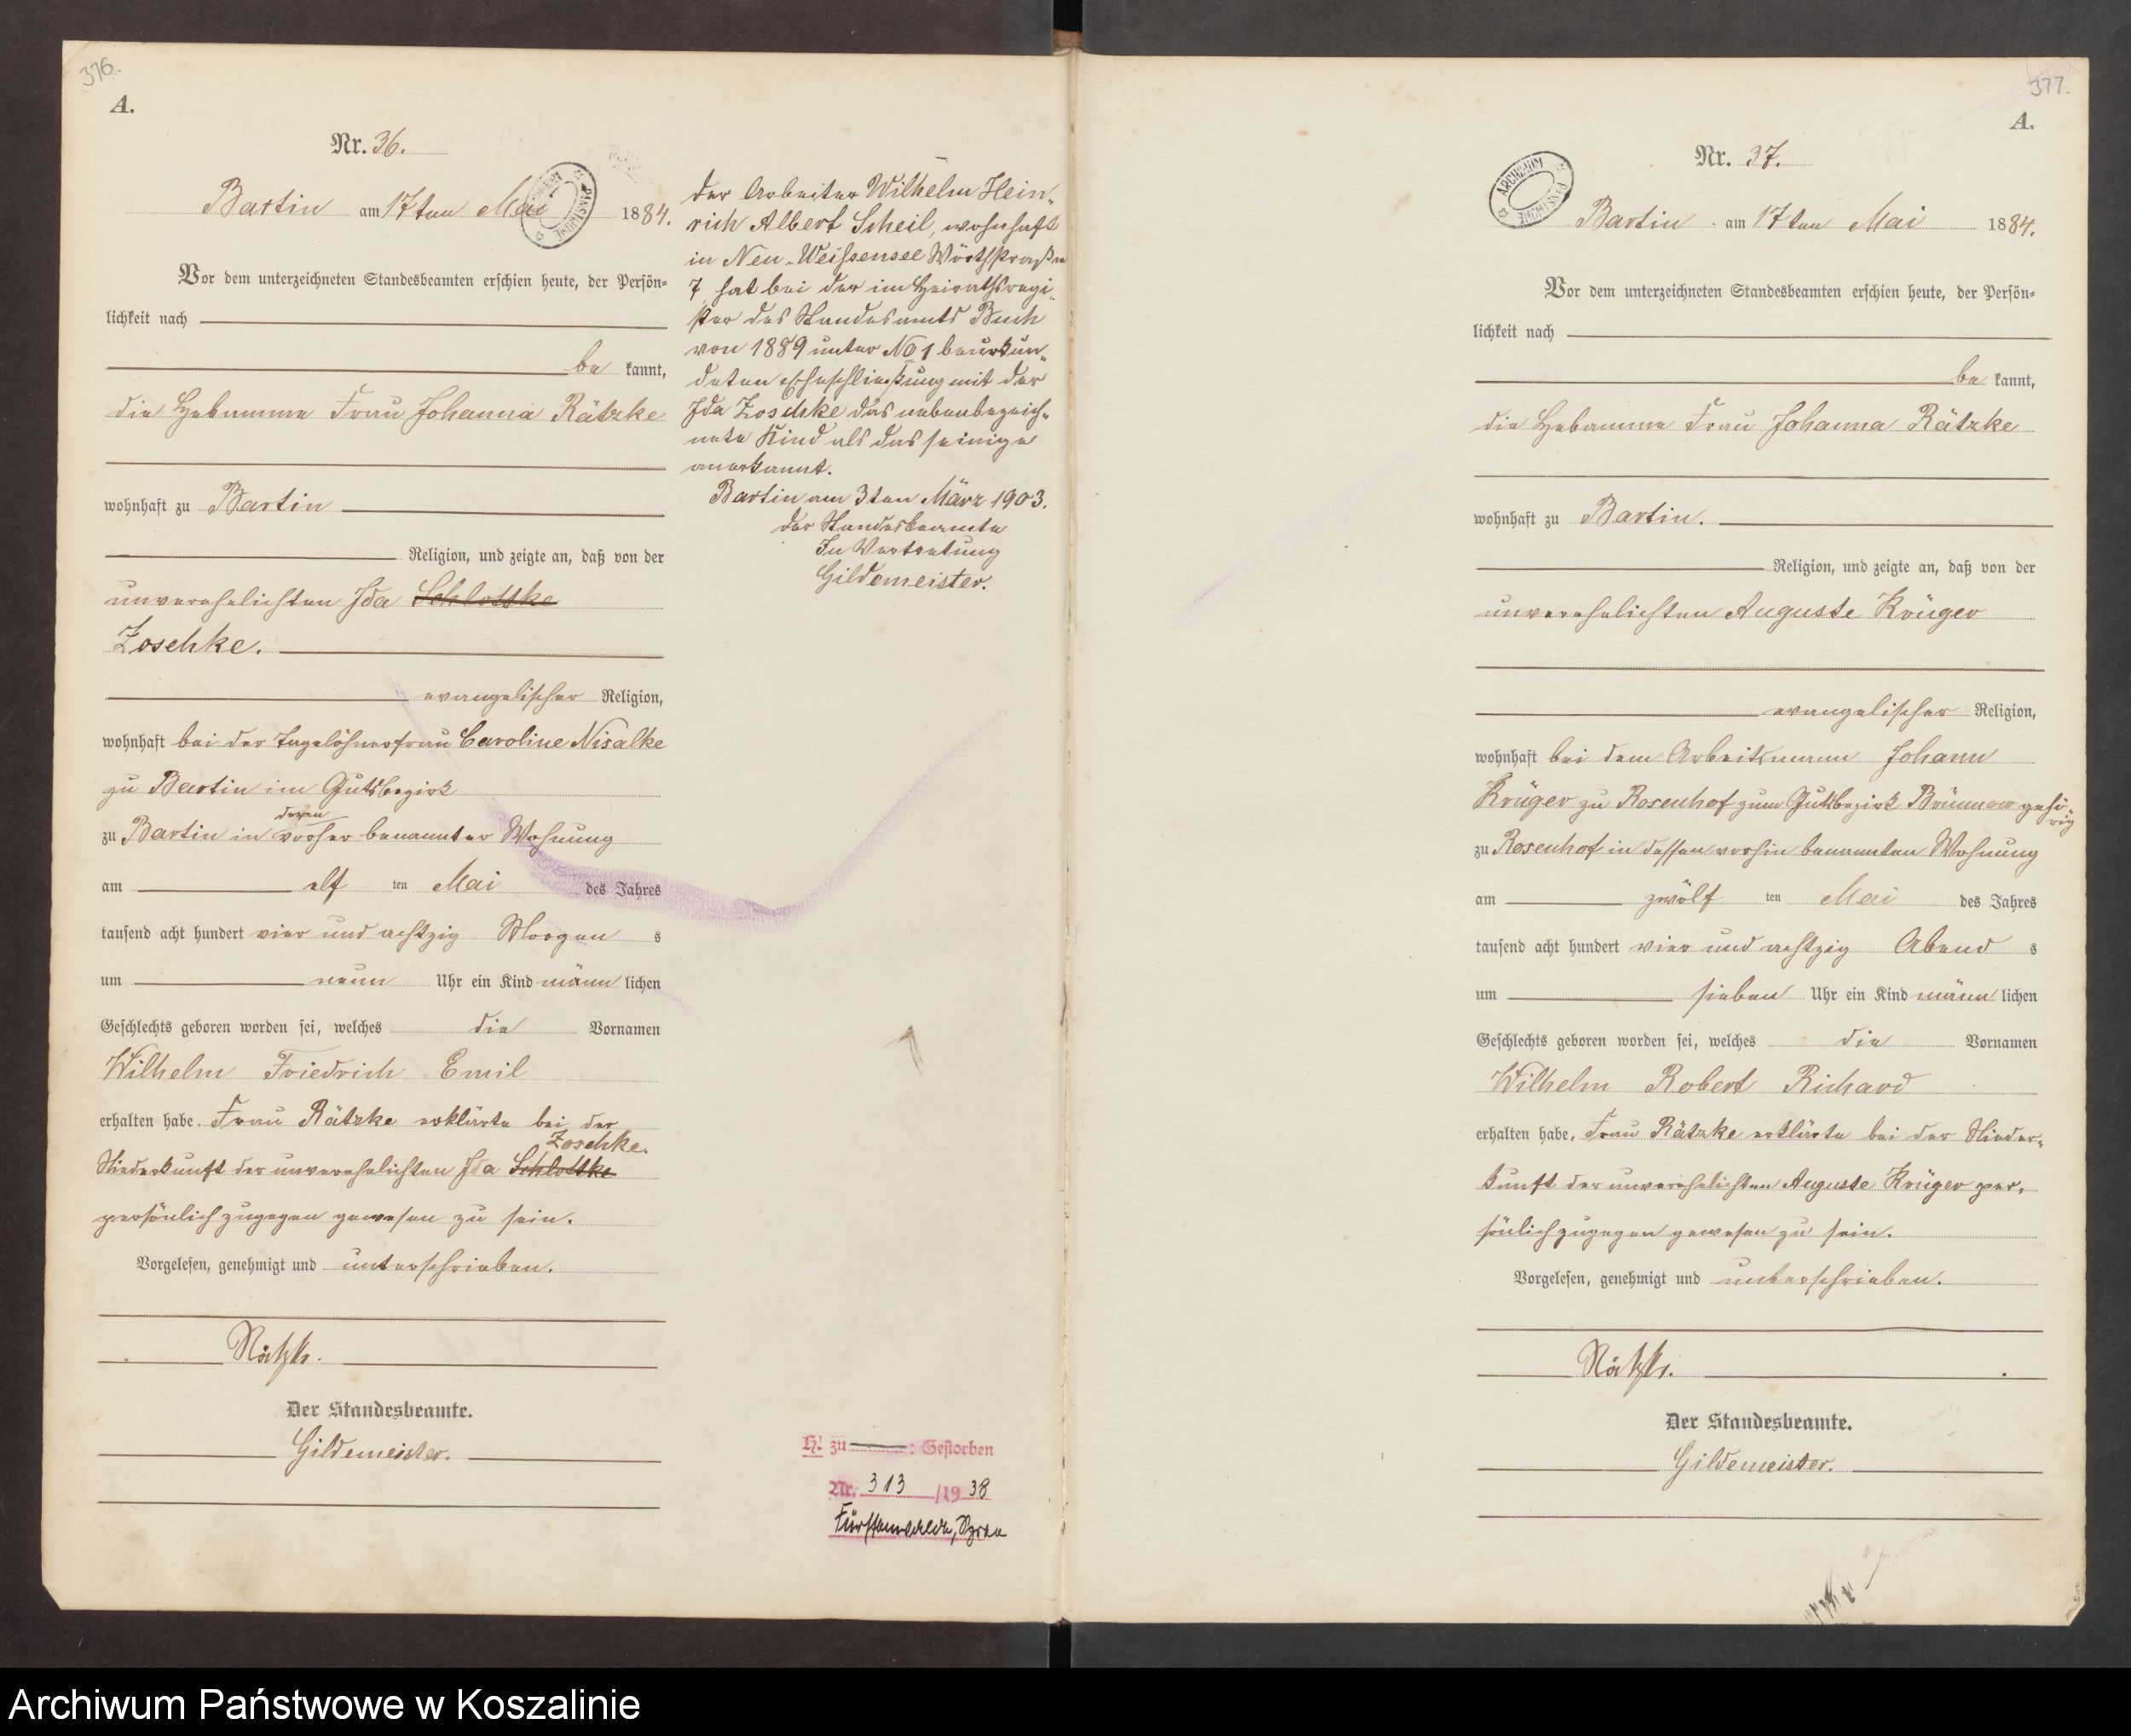 376.
A.
Nr. 36.
Bartin am 17ten Mai 1884.
Vor dem unterzeichneten Standesbeamten erschien heute, der Persön=
lichkeit nach
be kannt,
die Hebamme Frau Johanna Rätzke
wohnhaft zu Bartin
Religion, und zeigte an, daß von der
unverehelichten Ida Schlottke
Zoschke.
evangelischer Religion,
wohnhaft bei der Tagelöhnerfrau Caroline Nisalke
zu Bartin im Gutsbezirk
deren
zu Bartin in vorher benannter Wohnung
am elf ten Mai des Jahres
tausend acht hundert vier und achtzig Morgen s
um neun Uhr ein Kind männ lichen
Geschlechts geboren worden sei, welches die Vornamen
Wilhelm Friedrich Emil
erhalten habe. Frau Rätzke erklärte bei der
Zoschke.
Niederkunft der unverehelichten Ida Schlottke
persönlich zugegen gewesen zu sein.
Vorgelesen, genehmigt und unterschrieben.
Rätzke.
Der Standesbeamte.
Gildemeister.
der Arbeiter Wilhelm Hein-
rich Albert Scheil, wohnhaft
in Neu-Weißensee Wörthstraße
7 hat bei der im Heirathsregi-
ster des Standesamts Buch
von 1889 unter No 1 beurkun-
deten Eheschließung mit der
Ida Zoschke das nebenbezeich-
nete Kind als das seinige
anerkannt.
Bartin am 3ten März 1903.
der Standesbeamte
In Vertretung
Gildemeister.
H. zu : Gestorben
Nr. 313 /1938
Fürstenwalde, Spree
377.
A.
Nr. 37.
ARCHIWUM PAŃSTWOWE
Bartin am 17ten Mai 1884.
Vor dem unterzeichneten Standesbeamten erschien heute, der Persön=
lichkeit nach
be kannt,
die Hebamme Frau Johanna Rätzke
wohnhaft zu Bartin.
Religion, und zeigte an, daß von der
unverehelichten Auguste Krüger
evangelischer Religion,
wohnhaft bei dem Arbeitsmann Johann
Krüger zu Rosenhof zum Gutsbezirk Brünnow gehö-
rig
zu Rosenhof in dessen vorhin benannten Wohnung
am zwölf ten Mai des Jahres
tausend acht hundert vier und achtzig Abend s
um sieben Uhr ein Kind männ lichen
Geschlechts geboren worden sei, welches die Vornamen
Wilhelm Robert Richard
erhalten habe. Frau Rätzke erklärte bei der Nieder-
kunft der unverehelichten Auguste Krüger per-
sönlich zugegen gewesen zu sein.
Vorgelesen, genehmigt und unterschrieben.
Rätzke.
Der Standesbeamte.
Gildemeister.
Archiwum Państwowe w Koszalinie